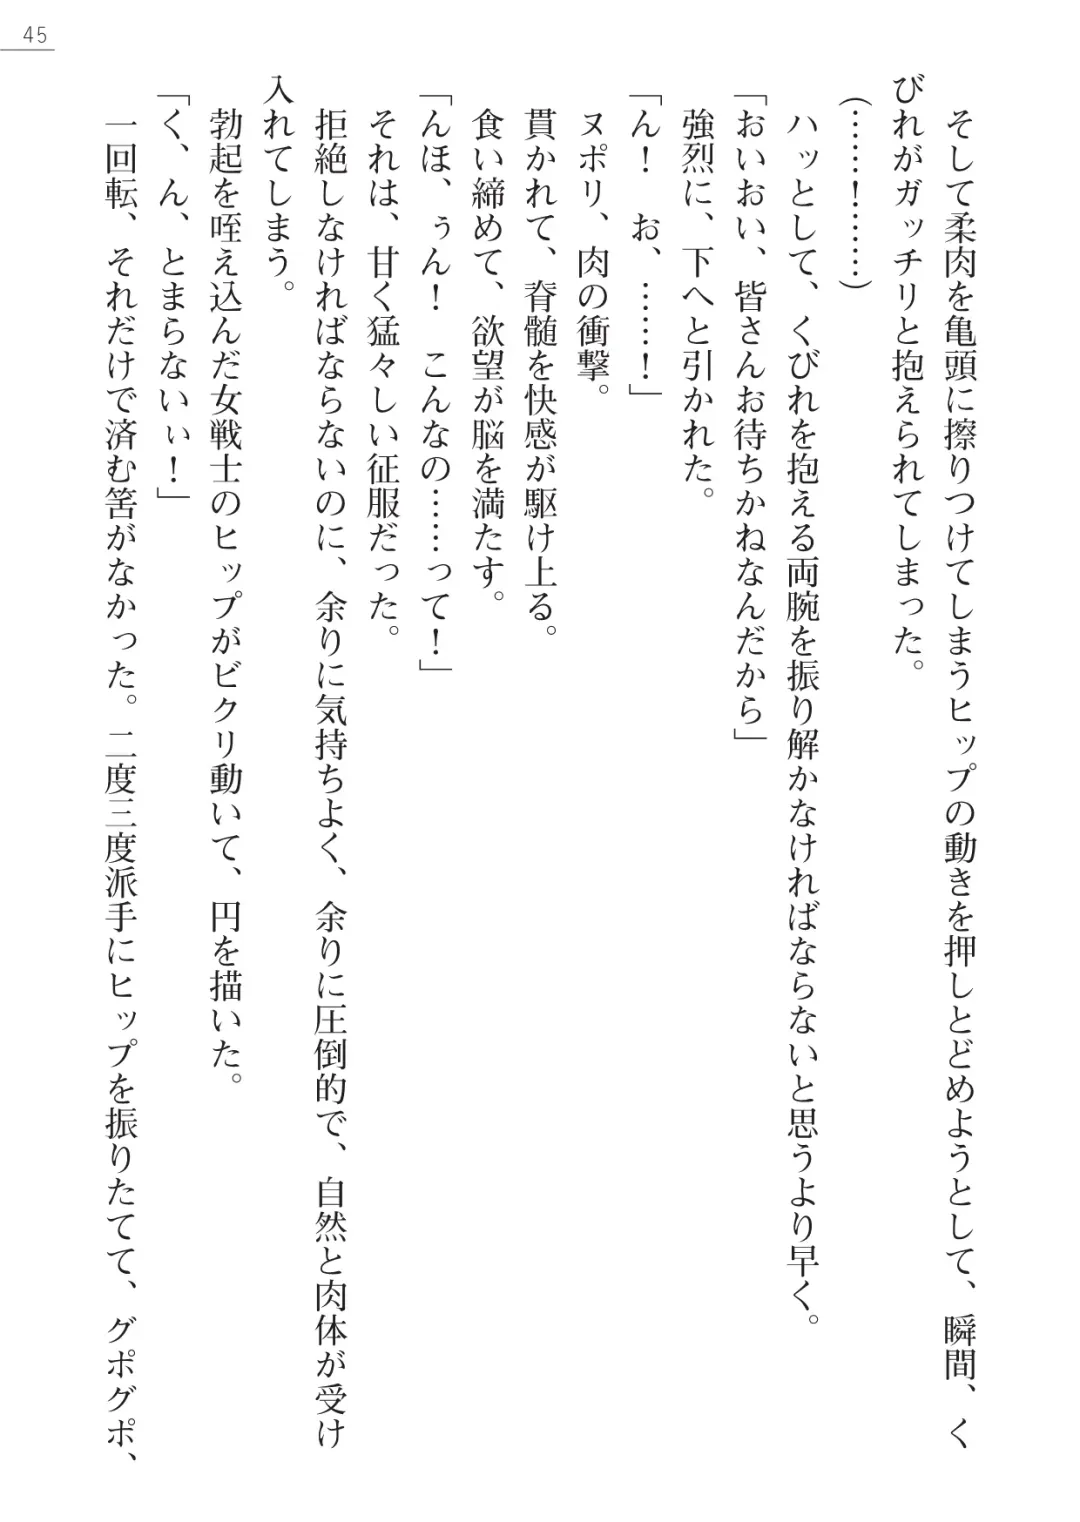 45
そして柔肉を亀頭に擦りつけてしまうヒップの動きを押しとどめようとして、瞬間、く
びれがガッチリと抱えられてしまった。
(……！……)
ハッとして、くびれを抱える両腕を振り解かなければならないと思うより早く。
「おいおい、皆さんお待ちかねなんだから」
強烈に、下へと引かれた。
「ん！　お、……！」
ヌポリ、肉の衝撃。
貫かれて、脊髄を快感が駆け上る。
食い締めて、欲望が脳を満たす。
「んほ、ぅん！　こんなの……って！」
それは、甘く猛々しい征服だった。
拒絶しなければならないのに、余りに気持ちよく、余りに圧倒的で、自然と肉体が受け
入れてしまう。
勃起を咥え込んだ女戦士のヒップがビクリ動いて、円を描いた。
「く、ん、とまらないぃ！」
一回転、それだけで済む筈がなかった。二度三度派手にヒップを振りたてて、グポグポ、